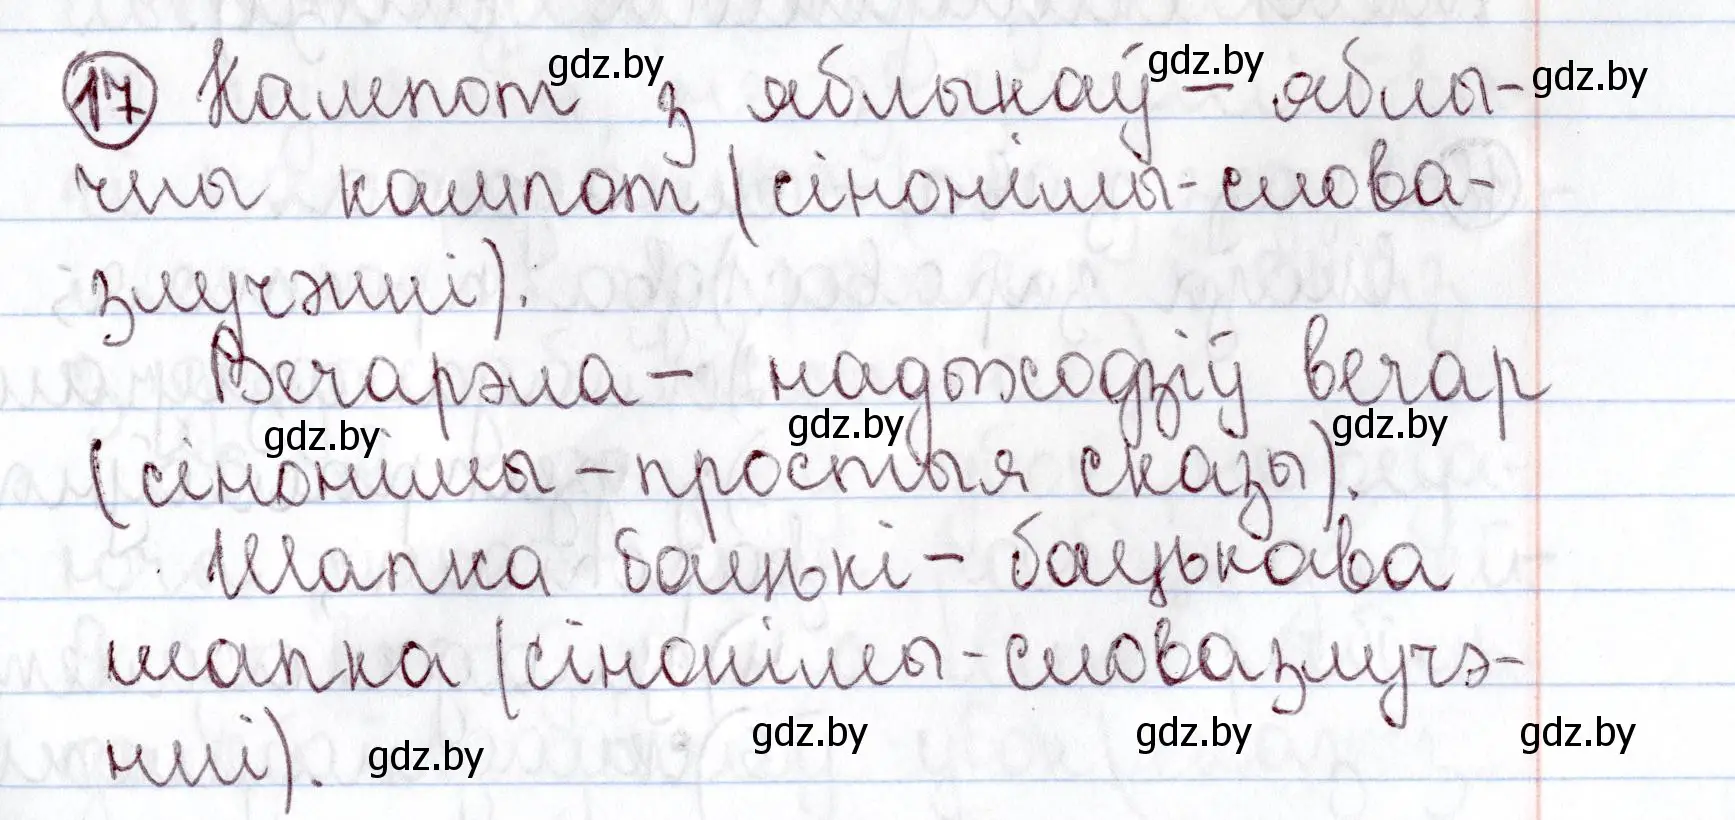 17 Кампот з яблыкаў – яблы-
чны кампот (сінонімы-слова-
злучэнні).
Вечарэла – надыходзіў вечар
(сінонімы – простыя сказы).
Шапка бацькі – бацькава
шапка (сінонімы-словазлучэ-
нні).
gdz.by
gdz.by
gdz.by
gdz.by
gdz.by
gdz.by
gdz.by
gdz.by
gdz.by
gdz.by